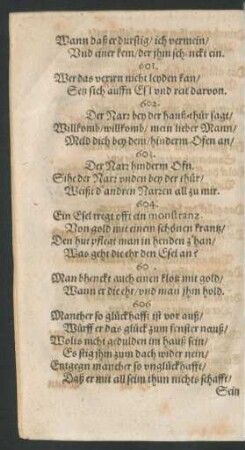 Wann daß er durstig/ ich vermein/
Vnd einer kem/ der jhm schenckt ein.
601.
Wer das vexirn nicht leyden kan/
Setz sich auffn Esl vnd reit darvon.
602.
Der Narr bey der hauß-thür sagt/
Willkomb/ willkomb/ mein lieber Mann/
Meld dich bey dem/ hinderm-Ofen an/
603.
Der Narr hinderm Ofn.
Sihe der Narr vnden bey der thür/
Weißt d'andren Narren all zu mir.
604.
Ein Esel tregt offt ein monstrantz
Von gold mit einem schönen krantz/
Den hut pflegt man in henden z'han/
Was geht die ehr den Esel an?
60.
Man bhenckt auch einen klotz mit gold/
Wann er die ehr/ vnd man jhm hold.
606
Mancher so glückhafft ist vor auß/
Würff er das glück zum fenster nauß/
Wolts nicht gedulden im hauß sein/
Es stig jhm zum dach wider nein/
Entgegn mancher so vnglückhafft/
Daß er mit all seim thun nichts schafft/
Sein